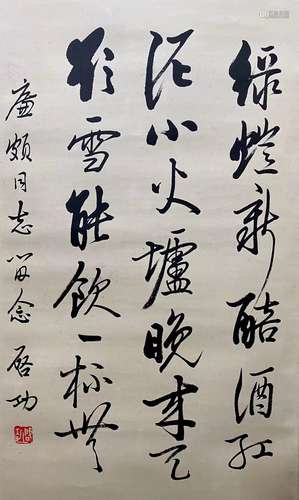 綠螘新醅酒紅
泥小火爐晚來天
欲雪能飲一杯無
廉頗同志留念 啓功